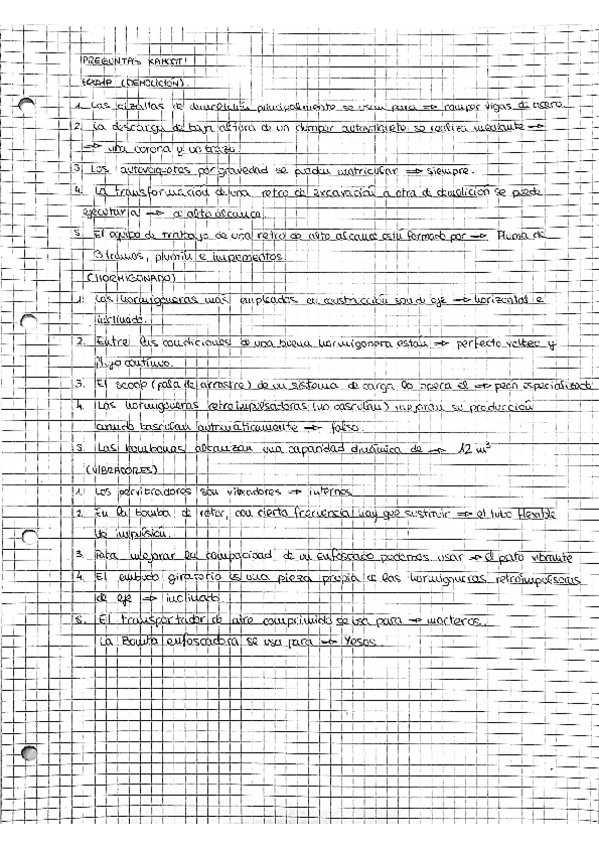 ¡PREGUNTAS KAHOOT!
(DEMOLICIÓN).
1. Las cizallas de demolición principalmente se usan para → romper vigas de acero
2. La descarga de baja altura de un dumper autovolquete se realiza mediante →
→ una corona y un brazo.
3. Los autovolquetes por gravedad se pueden matricular → siempre.
4. La transformación de una retro de excavación a otra de demolición se puede
ejecutar al → de alto alcance.
5. El equipo de trabajo de una retro de alto alcance está formado por → Pluma de
3 tramos, plumín e implementos.
(HORMIGONADO)
1. Las hormigoneras más empleadas en construcción son de eje → horizontal e
inclinado.
2. Entre las condiciones de una buena hormigonera están → perfecto volteo y
flujo continuo.
3. El scoop (pala de arrastre) de un sistema de carga lo opera el → peón especializado
4. Las hormigoneras retroimpulsadoras (no basculan) mejoran su producción
cuando basculan automáticamente → falso.
5. Las hormigoneras alcanzan una capacidad dinámica de → 12 m³
(VIBRADORES)
1. Los pervibradores son vibradores → internos
2. En la bomba de rotor, con cierta frecuencia hay que sustituir → el tubo flexible
de impulsión.
3. Para mejorar la compacidad de un enfoscado podemos usar → el pato vibrante
4. El embudo giratorio es una pieza propia de las hormigoneras retroimpulsoras
de eje → inclinado.
5. El transportador de aire comprimido se usa para → morteros.
La Bomba enfoscadora se usa para → Yesos.